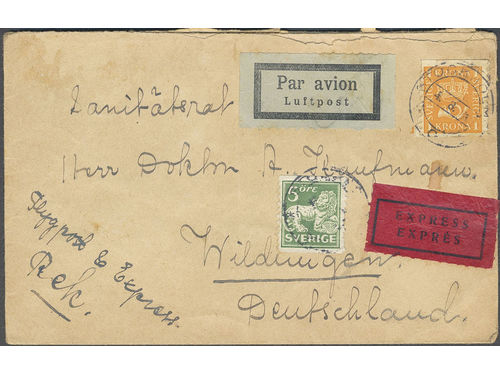 Par avion
Luftpost
KRONA 1
Sanitätsrat
Herr Doktor A. Kaufmann.
5 ÖRE
SVERIGE
EXPRESS
EXPRÈS
Wildungen.
Deutschland.
Flygpost & Express.
Rek.